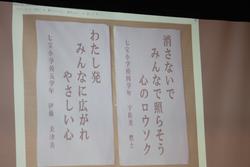 消さないで
みんなで照らそう
心のロウソク
七宝小学校四学年
わたし発
みんなに広がれ
やさしい心
七宝小学校五学年